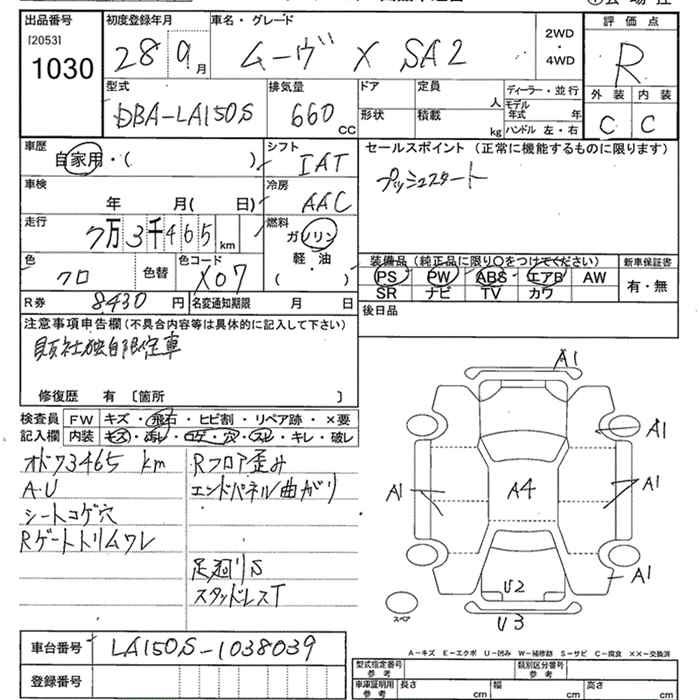 出品番号 初度登録年月 車名・グレード 2WD ・ 4WD 評価点
[2053]
1030 28 9月 ムーヴ X SA2 R
型式 排気量 ドア 定員 人 ディーラー・並行 外装 内装
DBA-LA150S 660 CC 形状 積載 kg モデル年式 年 ハンドル 左・右 C C
車歴 自家用・( ) シフト IAT セールスポイント (正常に機能するものに限ります)
プッシュスタート
車検 年 月( 日) 冷房 AAC
走行 7万3千465 km 燃料 ガソリン 軽・油 ( )
装備品 (純正品に限り○をつけてください) 新車保証書
PS PW ABS エアB AW 有・無
SR ナビ TV カワ
色 クロ 色替 色コード X07
後日品
R券 8430 円 名変通知期限 月 日
注意事項申告欄 (不具合内容等は具体的に記入して下さい)
販社独自限定車
修復歴 有 [箇所 ]
検査員 FW キズ・飛石・ヒビ割・リペア跡・×要
記入欄 内装 キズ・汚レ・コゲ・穴・スレ・キレ・破レ
オド73465 km Rフロア歪み
A.U エンドパネル曲がり
シートコゲ穴
Rゲートトリムワレ
足廻りS
スタッドレスT
A1
A1
A1 A4 A1
A1
U2
U3
スペア
車台番号 LA150S-1038039
A-キズ E-エクボ U-凹み W-補修跡 S-サビ C-腐食 ××-交換済
登録番号
型式指定番号 参考 類別区分番号 参考
車庫証明用 参考 長さ cm 幅 cm 高さ cm